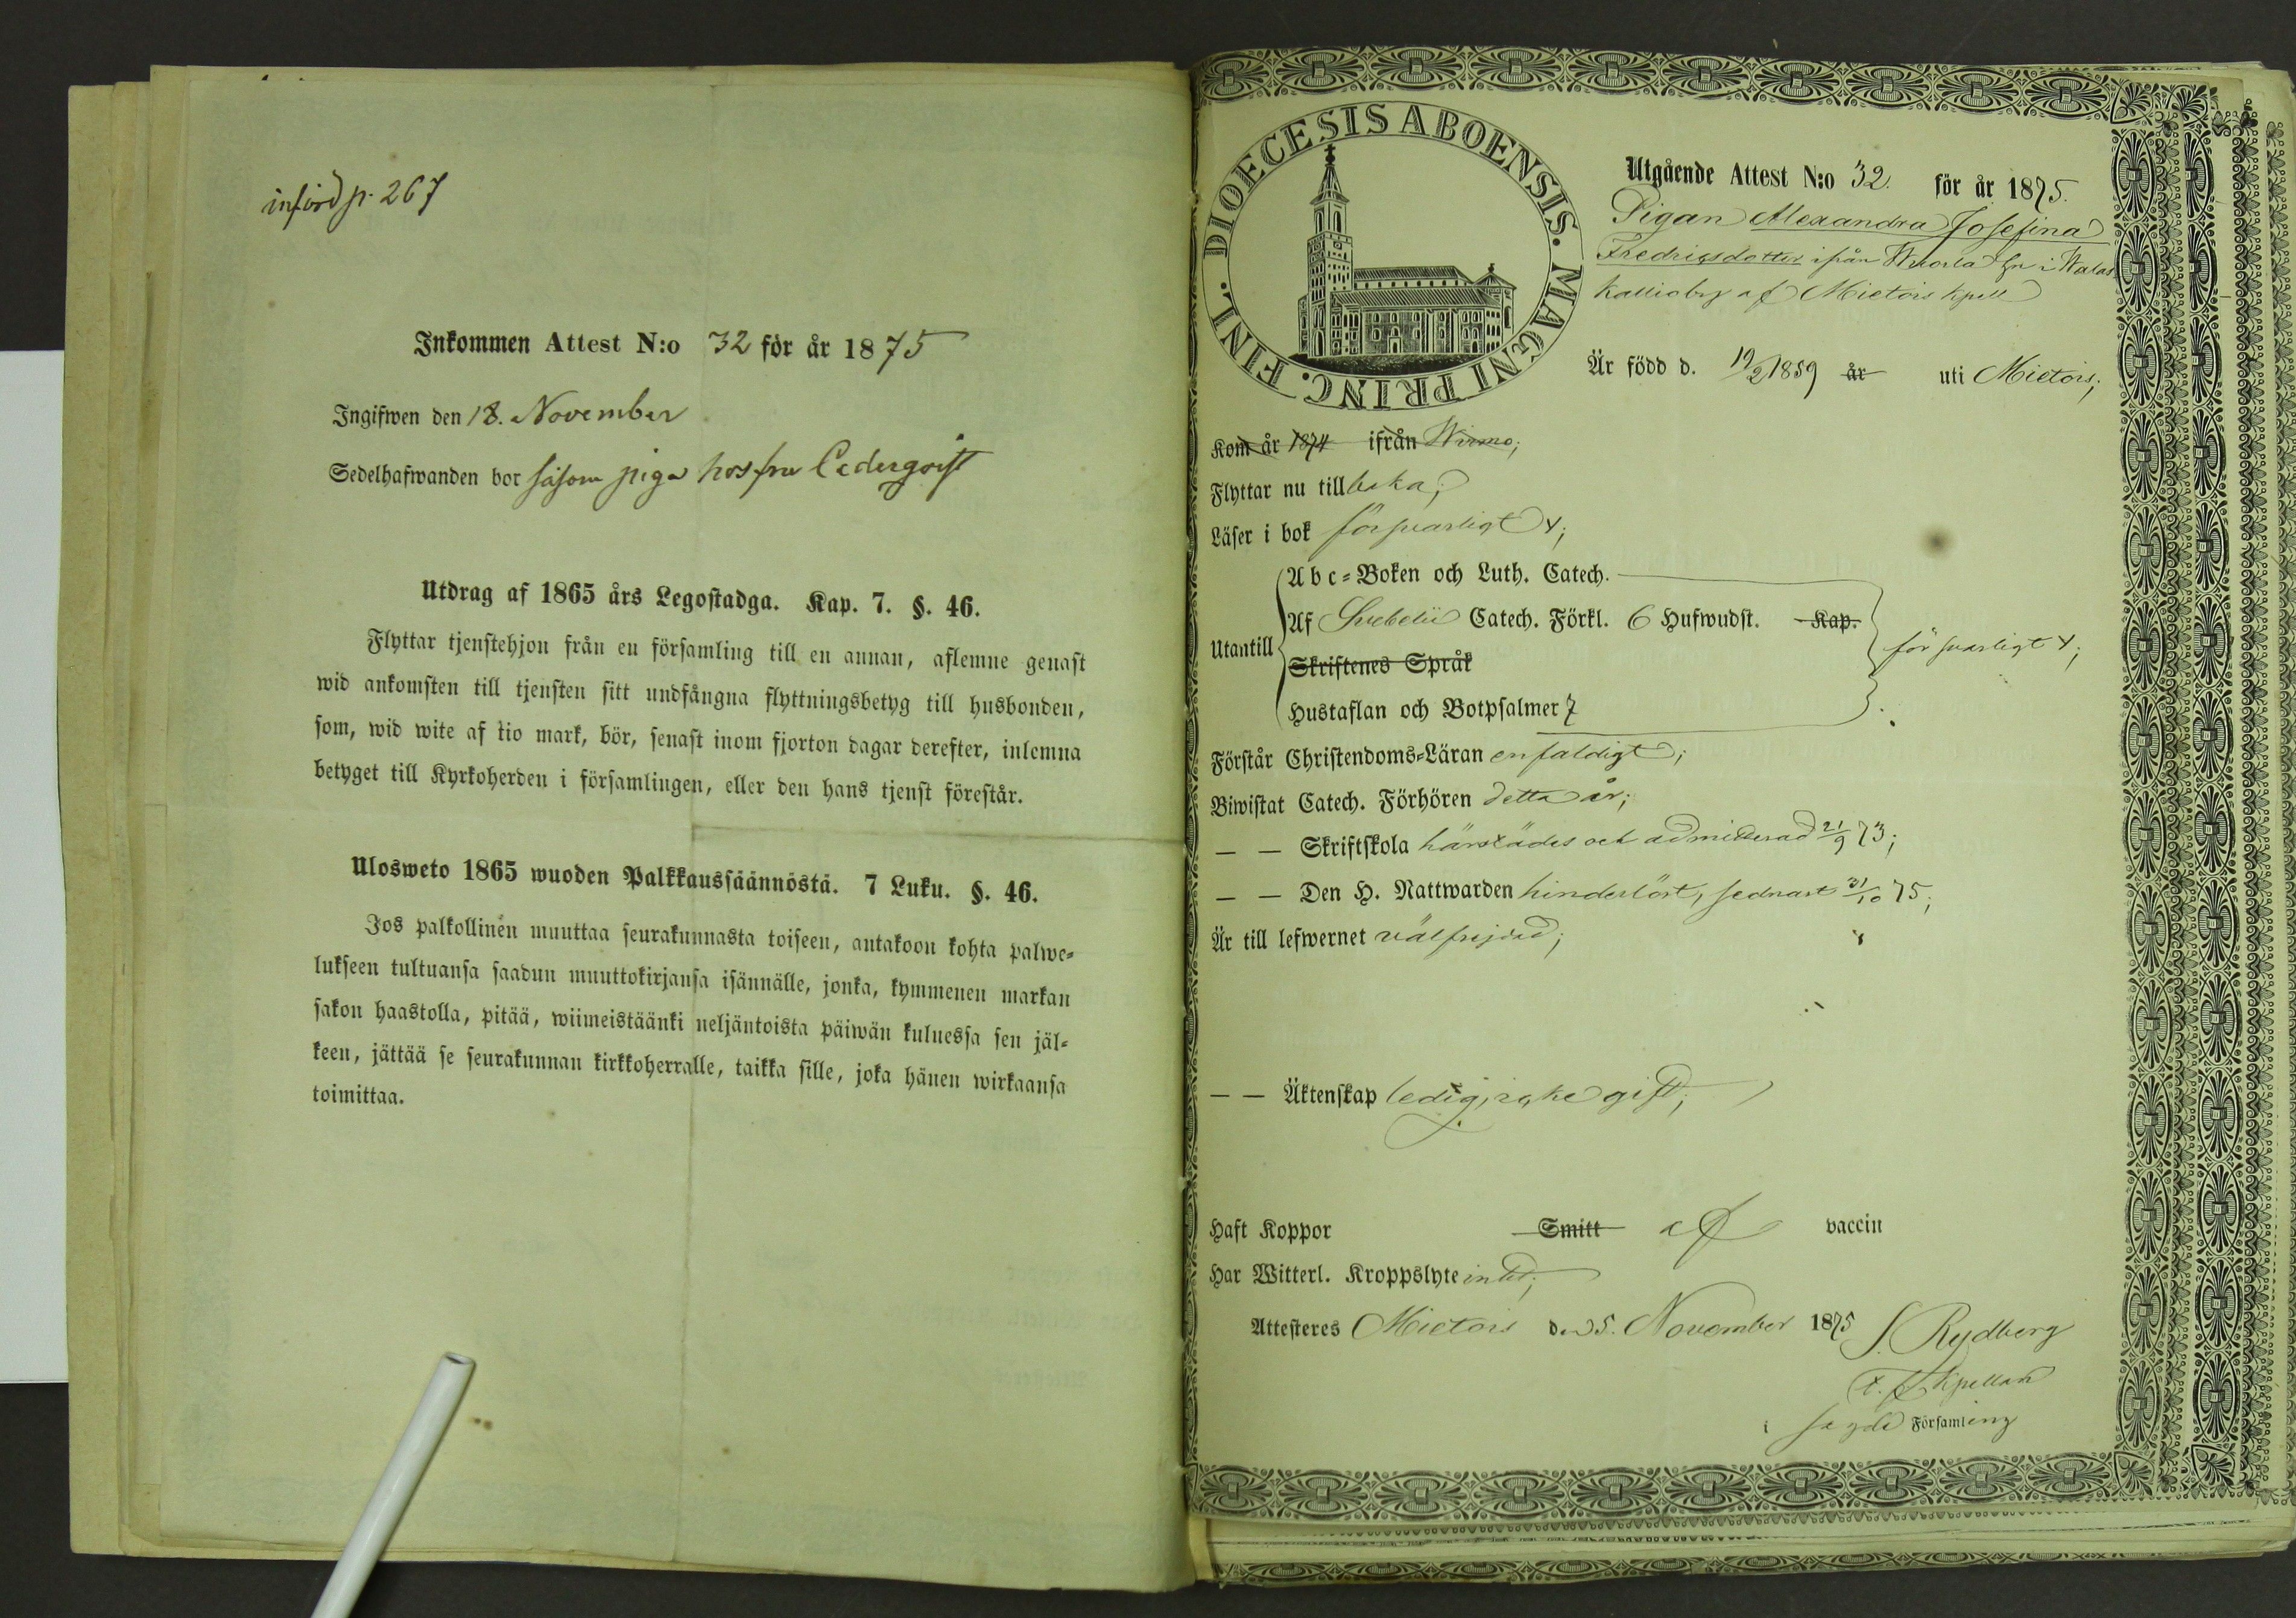 införd p. 267
Inkommen Attest N:o 32 för år 1875
Ingifwen den 18. November
Sedelhafwanden bor såsom piga hos fru Cederqvist
Utdrag af 1865 års Legostadga. Kap. 7. §. 46.
Flyttar tjenstehjon från en församling till en annan, aflemne genast
wid ankomsten till tjensten sitt undfångna flyttningsbetyg till husbonden,
som, wid wite af tio mark, bör, senast inom fjorton dagar derefter, inlemna
betyget till Kyrkoherden i församlingen, eller den hans tjenst förestår.
Ulosweto 1865 wuoden Palkkaussäännöstä. 7 Luku. §. 46.
Jos palkollinen muuttaa seurakunnasta toiseen, antakoon kohta palwe-
lukseen tultuansa saadun muuttokirjansa isännälle, jonka, kymmenen markan
sakon haastolla, pitää, wiimeistäänki neljäntoista päiwän kuluessa sen jäl-
keen, jättää se seurakunnan kirkkoherralle, taikka sille, joka hänen wirkaansa
toimittaa.
DIOECESIS ABOENSIS. MAGNI PRINC. FINL.
Utgående Attest N:o 32. för år 1875.
Pigan Alexandra Josefina
Fredrigsdotter ifrån i Walas
kallioby af Mietois kpell
Är född d. 19/2 1859 år uti Mietois;
Kom år 1874 ifrån Wirmo;
Flyttar nu tillbaka;
Läser i bok försvarligt +;
Utantill
Abc-Boken och Luth. Catech.
Af Svebelii Catech. Förkl. 6 Hufwudst. Kap.
Skriftenes Språk
Hustaflan och Botpsalmer 7
försvarligt +;
Förstår Christendoms-Läran enfaldigt;
Biwistat Catech. Förhören detta år;
— — Skriftskola härstädes och admitterad 21/9 73;
— — Den H. Nattwarden hinderlöst, sednast 31/10 75;
Är till lefwernet välfrejdad;
— — Äktenskap ledig, icke gift;
Haft Koppor Smitt af vaccin
Har Witterl. Kroppslyte intet;
Attesteres Mietois den 5. November 1875
S. Rydberg
t. f. Kpellan
i sagde Församling